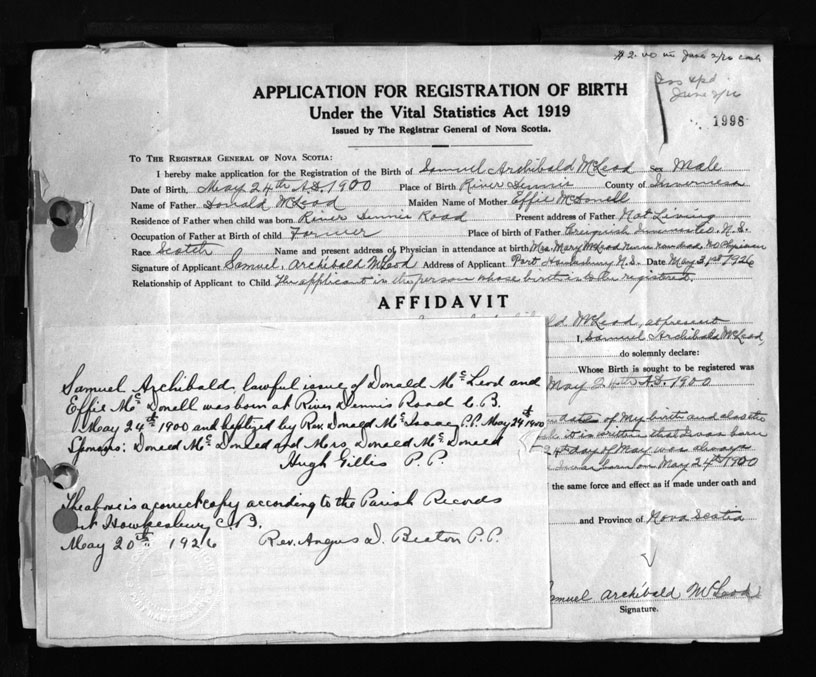 $2.00
June 2/26
1998
APPLICATION FOR REGISTRATION OF BIRTH
Under the Vital Statistics Act 1919
Issued by The Registrar General of Nova Scotia.
TO THE REGISTRAR GENERAL OF NOVA SCOTIA:
I hereby make application for the Registration of the Birth of Samuel Archibald McLeod a Male
Date of Birth, May 24th A.D. 1900 Place of Birth River Dennis County of Inverness
Name of Father Donald McLeod Maiden Name of Mother Effie McDonell
Residence of Father when child was born River Dennis Road Present address of Father Not Living
Occupation of Father at Birth of child Farmer Place of birth of Father Creignish Inverness Co. N.S.
Race Scotch Name and present address of Physician in attendance at birth Mrs. Mary McLeod Nurse no Physician
Signature of Applicant Samuel, Archibald McLeod Address of Applicant Port Hawkesbury N.S. Date May 31st 1926
Relationship of Applicant to Child The applicant is the person whose birth is to be registered.
AFFIDAVIT
McLeod, at present
I, Samuel Archibald McLeod,
do solemnly declare:
Whose Birth is sought to be registered was
May 24th A.D. 1900
dates of my birth and also the
it is written that I was born
24th day of May was always
born on May 24th 1900
the same force and effect as if made under oath and
and Province of Nova Scotia
Samuel Archibald McLeod
Signature.
Samuel Archibald, lawful issue of Donald McLeod and
Effie McDonell was born at River Dennis Road C.B.
May 24th 1900 and baptized by Rev. Donald McIsaac P.P. May 29th 1900
Sponsors: Donald McDonald and Mrs. Donald McDonald
Hugh Gillis P.P.
The above is a correct copy according to the Parish Records
Port Hawkesbury C.B.
May 20th 1926 Rev. Angus D. Beaton P.P.